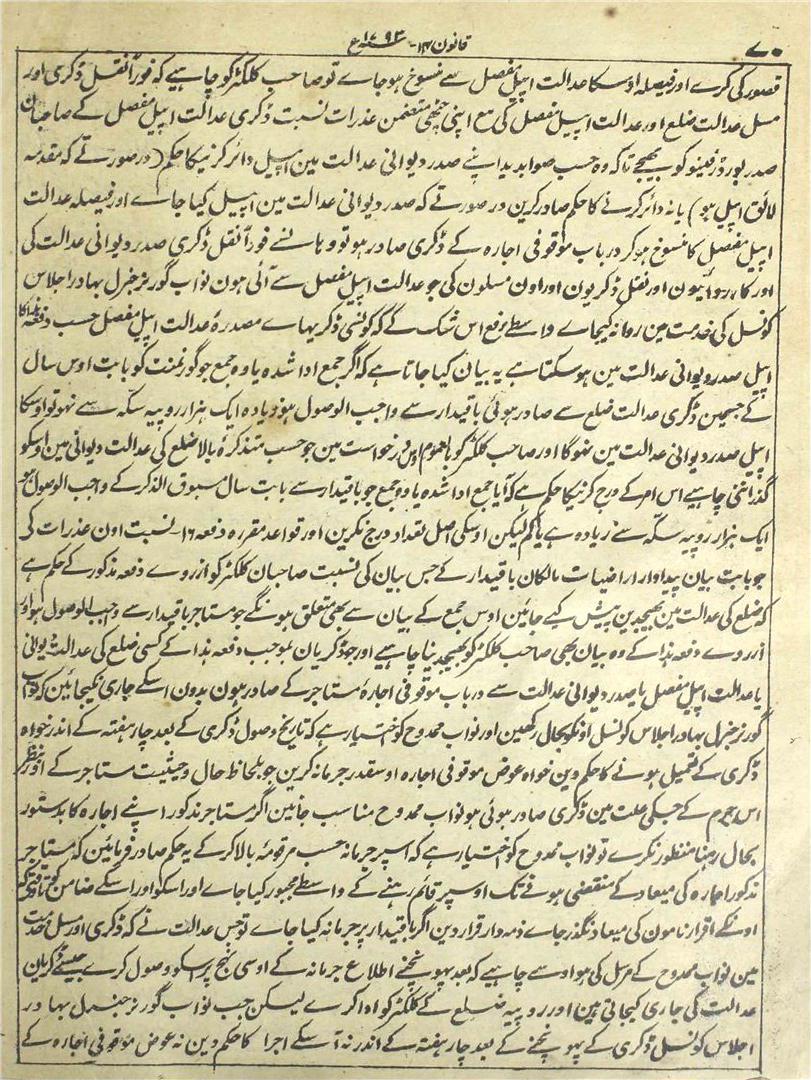 ۷۰
قانون ۱۴ - ۱۷۹۳ سنہ ع
قصور کی کرے اور فیصلہ اوسکا عدالت اپیل مفصل سے منسوخ ہو جاے تو صاحب کلکٹر کو چاہیے کہ فوراً نقل ڈگری اور
مسل عدالت ضلع اور عدالت اپیل مفصل کی مع اپنی چٹھی متضمن عذرات نسبت ڈگری عدالت اپیل مفصل کے صاحبان
صدر بورڈ رفینو کو بھیجے تاکہ وہ حسب صوابدید اپنے صدر دیوانی عدالت مین اپیل دائر کرنیکا حکم (درصورتے کہ مقدمہ
لائق اپیل ہو) یا نہ دائر کرنے کا حکم صادر کرین درصورتے کہ صدر دیوانی عدالت مین اپیل کیا جاے اور فیصلہ عدالت
اپیل مفصل کا منسوخ ہو کر درباب موقوفی اجارہ کے ڈگری صادر ہو تو وہانسے فوراً نقل ڈگری صدر دیوانی عدالت کی
اور کارروائیون اور نقل ڈگریون اور اون مسلون کی جو عدالت اپیل مفصل سے آئی ہون نواب گورنر جنرل بہادر اجلاس
کونسل کی خدمت مین روانہ کیجاے واسطے رفع اس شک کے کہ کونسی ڈگریہاے مصدرۂ عدالت اپیل مفصل حسب دفعہ ہذا کا
اپیل صدر دیوانی عدالت مین ہوسکتا ہے یہ بیان کیا جاتا ہے کہ اگر جمع ادا شدہ یا وہ جمع جو گورنمنٹ کو بابت اوس سال
کے جسمین ڈگری عدالت ضلع سے صادر ہوئی باقیدار سے واجب الوصول ہو زیادہ ایک ہزار روپیہ سکہ سے نہو تو اوسکا
اپیل صدر دیوانی عدالت مین نہوگا اور صاحب کلکٹر کو بالعموم اوس درخواست مین جو حسب متذکرۂ بالا ضلع کی عدالت دیوانی مین اوسکو
گذراننی چاہیے اس امر کے درج کرنیکا حکم ہے کہ آیا جمع ادا شدہ یا وہ جمع جو باقیدار سے بابت سال مسبوق الذکر کے واجب الوصول ہو
ایک ہزار روپیہ سکہ سے زیادہ ہے یا کم لیکن اوسکی اصل تعداد درج نکرین اور قواعد مقررہ دفعہ ۱۶ - نسبت اون عذرات کی
جو بابت بیان پیداوار اراضیات مالکان باقیدار کے جس بیان کی نسبت صاحبان کلکٹر کو ازروے دفعہ مذکور کے حکم ہے
کہ ضلع کی عدالت مین بھیجدین پیش کیے جائین اوس جمع کے بیان سے بھی متعلق ہونگے جو مستاجر باقیدار سے واجب الوصول ہو اور
ازروے دفعہ ہذا کے وہ بیان بھی صاحب کلکٹر کو بھیجدینا چاہیے اور جو ڈگریان بموجب دفعہ ہذا کے کسی ضلع کی عدالت دیوانی
یا عدالت اپیل مفصل یا صدر دیوانی عدالت سے درباب موقوفی اجارۂ مستاجر کے صادر ہون بدون اسکے جاری نکیجائین کہ نواب
گورنر جنرل بہادر اجلاس کونسل اونکو بحال رکھین اور نواب ممدوح کو اختیار ہے کہ تاریخ وصول ڈگری کے بعد چار ہفتہ کے اندر خواہ
ڈگری کے تعمیل ہونے کا حکم دین خواہ عوض موقوفی اجارہ اوسقدر جرمانہ کرین جو بلحاظ حال و حیثیت مستاجر کے اور بنظر
اس جرم کے جسکی علت مین ڈگری صادر ہوئی ہو نواب ممدوح مناسب جانین اگر مستاجر مذکور اپنے اجارہ کا بدستور
بحال رہنا منظور نکرے تو نواب ممدوح کو اختیار ہے کہ اسپر جرمانہ حسب مرقومۂ بالا کر کے یہ حکم صادر فرمائین کہ مستاجر
مذکور اجارہ کی میعاد کے منقضی ہونے تک اوسپر قائم رہنے کے واسطے مجبور کیا جاے اور اسکو اور اسکے ضامن کو تاوقتیکہ
اونکے اقرار نامون کی میعاد نگذر جاے ذمہ دار قرار دین اگر باقیدار پر جرمانہ کیا جاے تو جس عدالت نے کہ ڈگری اور مسل خدمت
مین نواب ممدوح کے مرسل کی ہو اوسے چاہیے کہ بعد پہونچنے اطلاع جرمانہ کے اوسی نہج پر اسکو وصول کرے جیسے ڈگریان
عدالت کی جاری کیجاتی ہین اور روپیہ ضلع کے کلکٹر کو ادا کرے لیکن جب نواب گورنر جنرل بہادر
اجلاس کونسل ڈگری کے پہونچنے کے بعد چار ہفتہ کے اندر نہ اسکے اجرا کا حکم دین نہ عوض موقوفی اجارہ کے